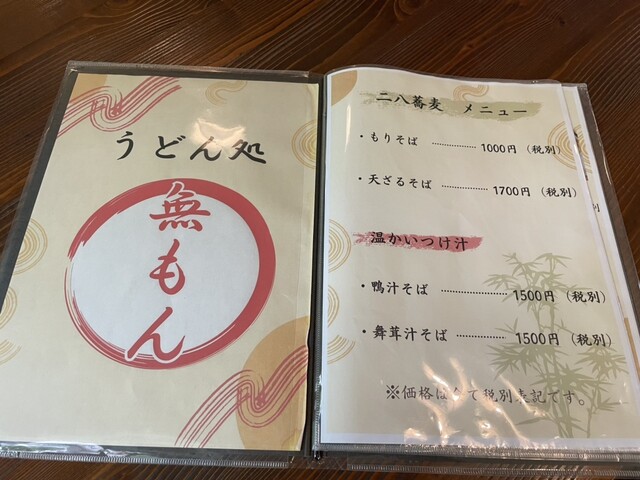 うどん処
無もん
二八蕎麦 メニュー
・もりそば ………… 1000円 (税別)
・天ざるそば ………… 1700円 (税別)
温かいつけ汁
・鴨汁そば ………… 1500円 (税別)
・舞茸汁そば ………… 1500円 (税別)
※価格は全て税別表記です。